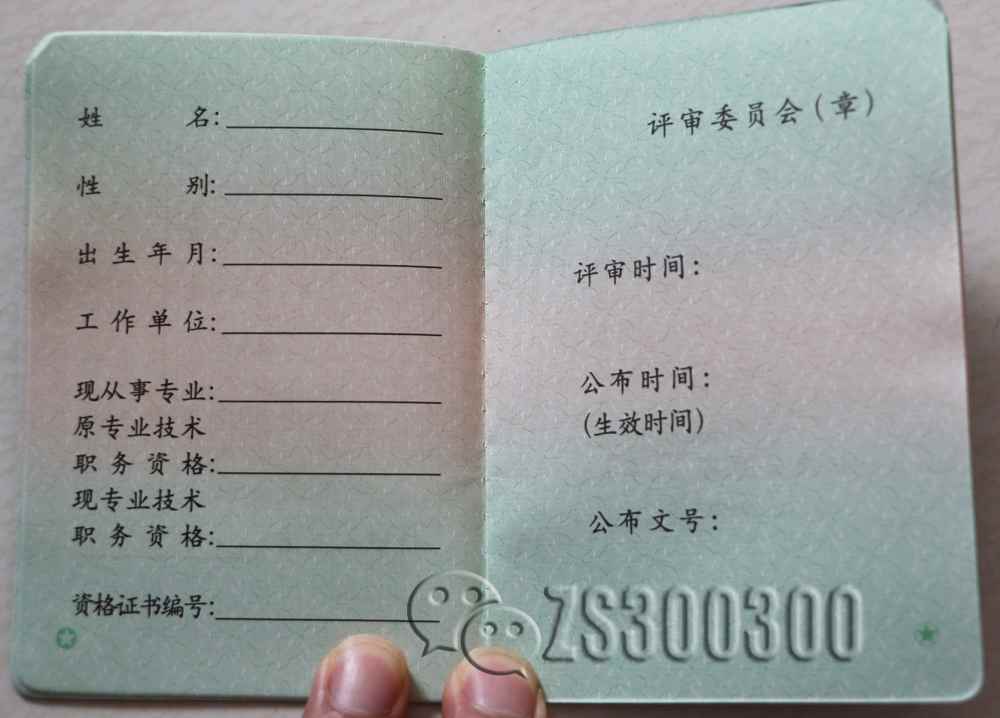 姓名:
性别:
出生年月:
工作单位:
现从事专业:
原专业技术
职务资格:
现专业技术
职务资格:
资格证书编号:
评审委员会(章)
评审时间:
公布时间:
(生效时间)
公布文号:
ZS300300